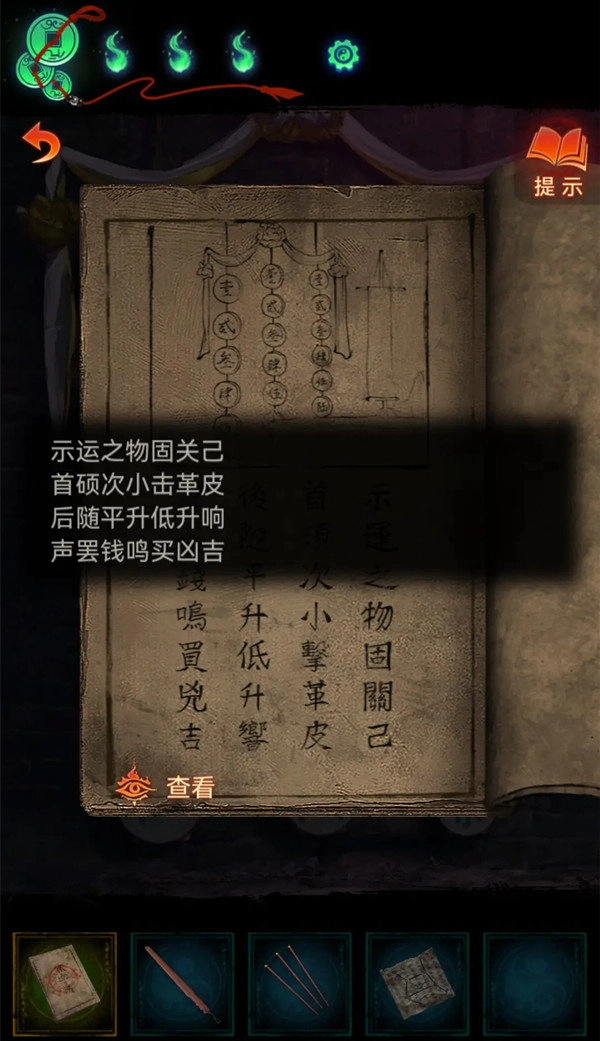 提示
壹 壹 壹
贰 贰 贰
叁 叁 叁
肆 肆
伍
示运之物固关己
首硕次小击革皮
后随平升低升响
声罢钱鸣买凶吉
示運之物固關己
首須次小擊革皮
後隨平升低升響
錢鳴買兇吉
查看